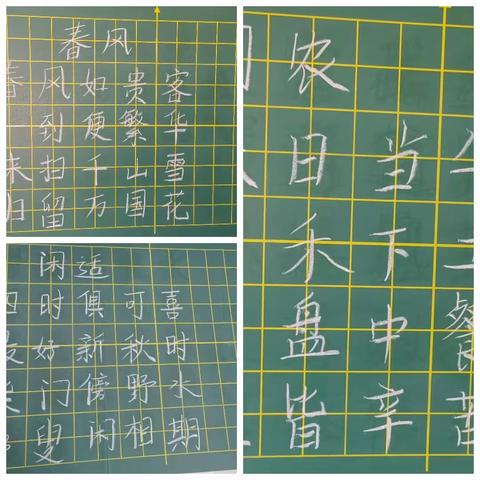 春风
春风如贵客
到便繁华
来扫千山雪
归留万国花
闲适
四时俱可喜
最好新秋时
门傍野水
叟闲相期
农
日当午
禾下土
盘中餐
皆辛苦